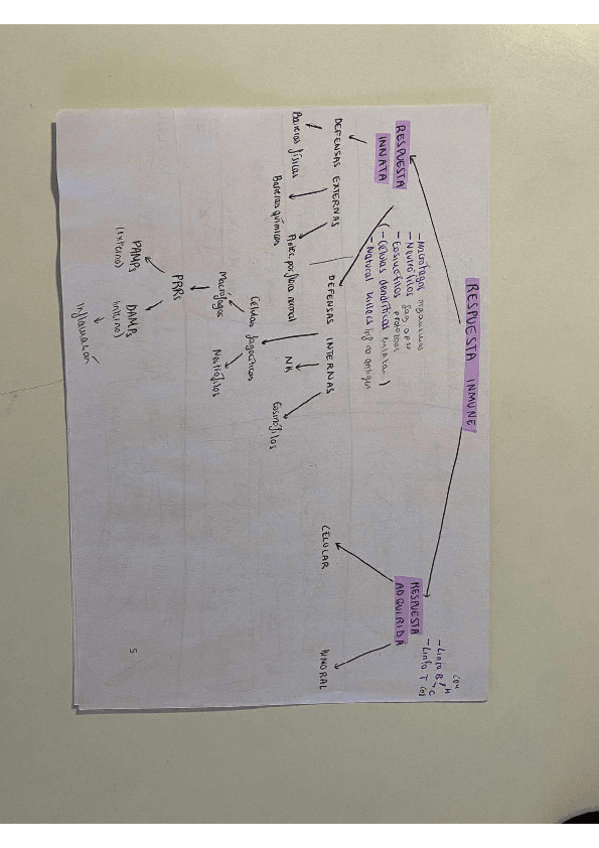 RESPUESTA INMUNE
RESPUESTA
INNATA
- Macrófagos
- Neutrófilos
- Eosinófilos
(- Células dendríticas)
- Natural killers
RESPUESTA
ADQUIRIDA
- Linfo B
- Linfo T
CD4
DEFENSAS EXTERNAS
DEFENSAS INTERNAS
CELULAR
Barreras físicas
Barreras químicas
flora normal
Células fagocíticas
NK
Eosinófilos
Macrófagos
Neutrófilos
PRRs
PAMPs
(externo)
DAMPs
(interno)
Inflamación
5